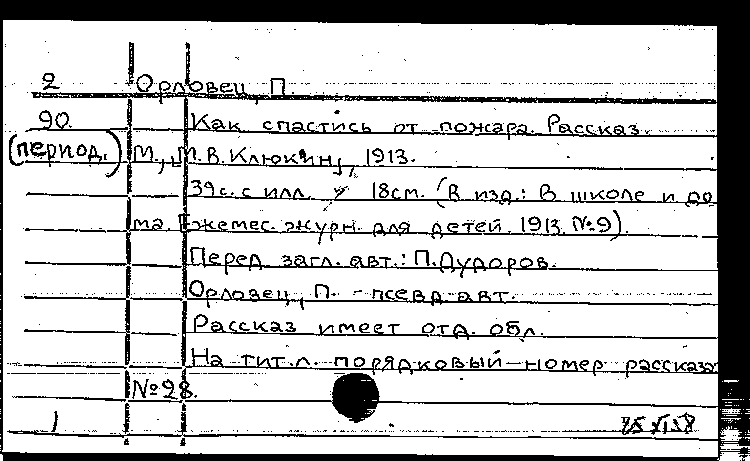 2 Орловец, П.
90. Как спастись от пожара. Рассказ.
(период.) М., М.В. Клюкин, 1913.
39с. с илл. 18см. (В изд.: В школе и до
ма. Ежемес. журн. для детей. 1913. №9).
Перед загл. авт.: П. Дудоров.
Орловец, П. - псевд. авт.
Рассказ имеет отд. обл.
На тит. л. порядковый номер рассказа
№28.
1